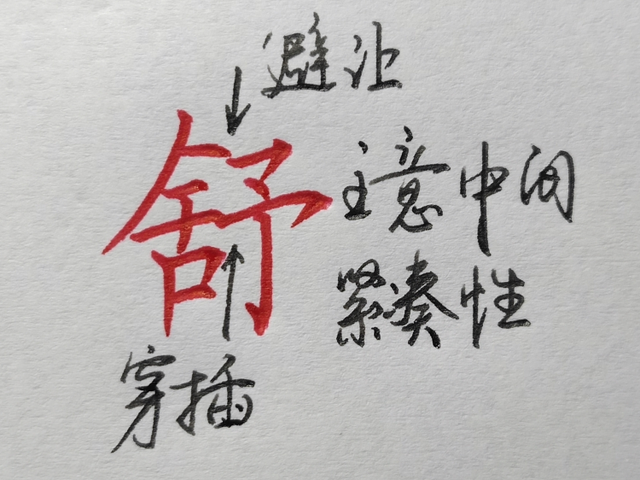 避让
舒
主意中间
紧凑性
穿插